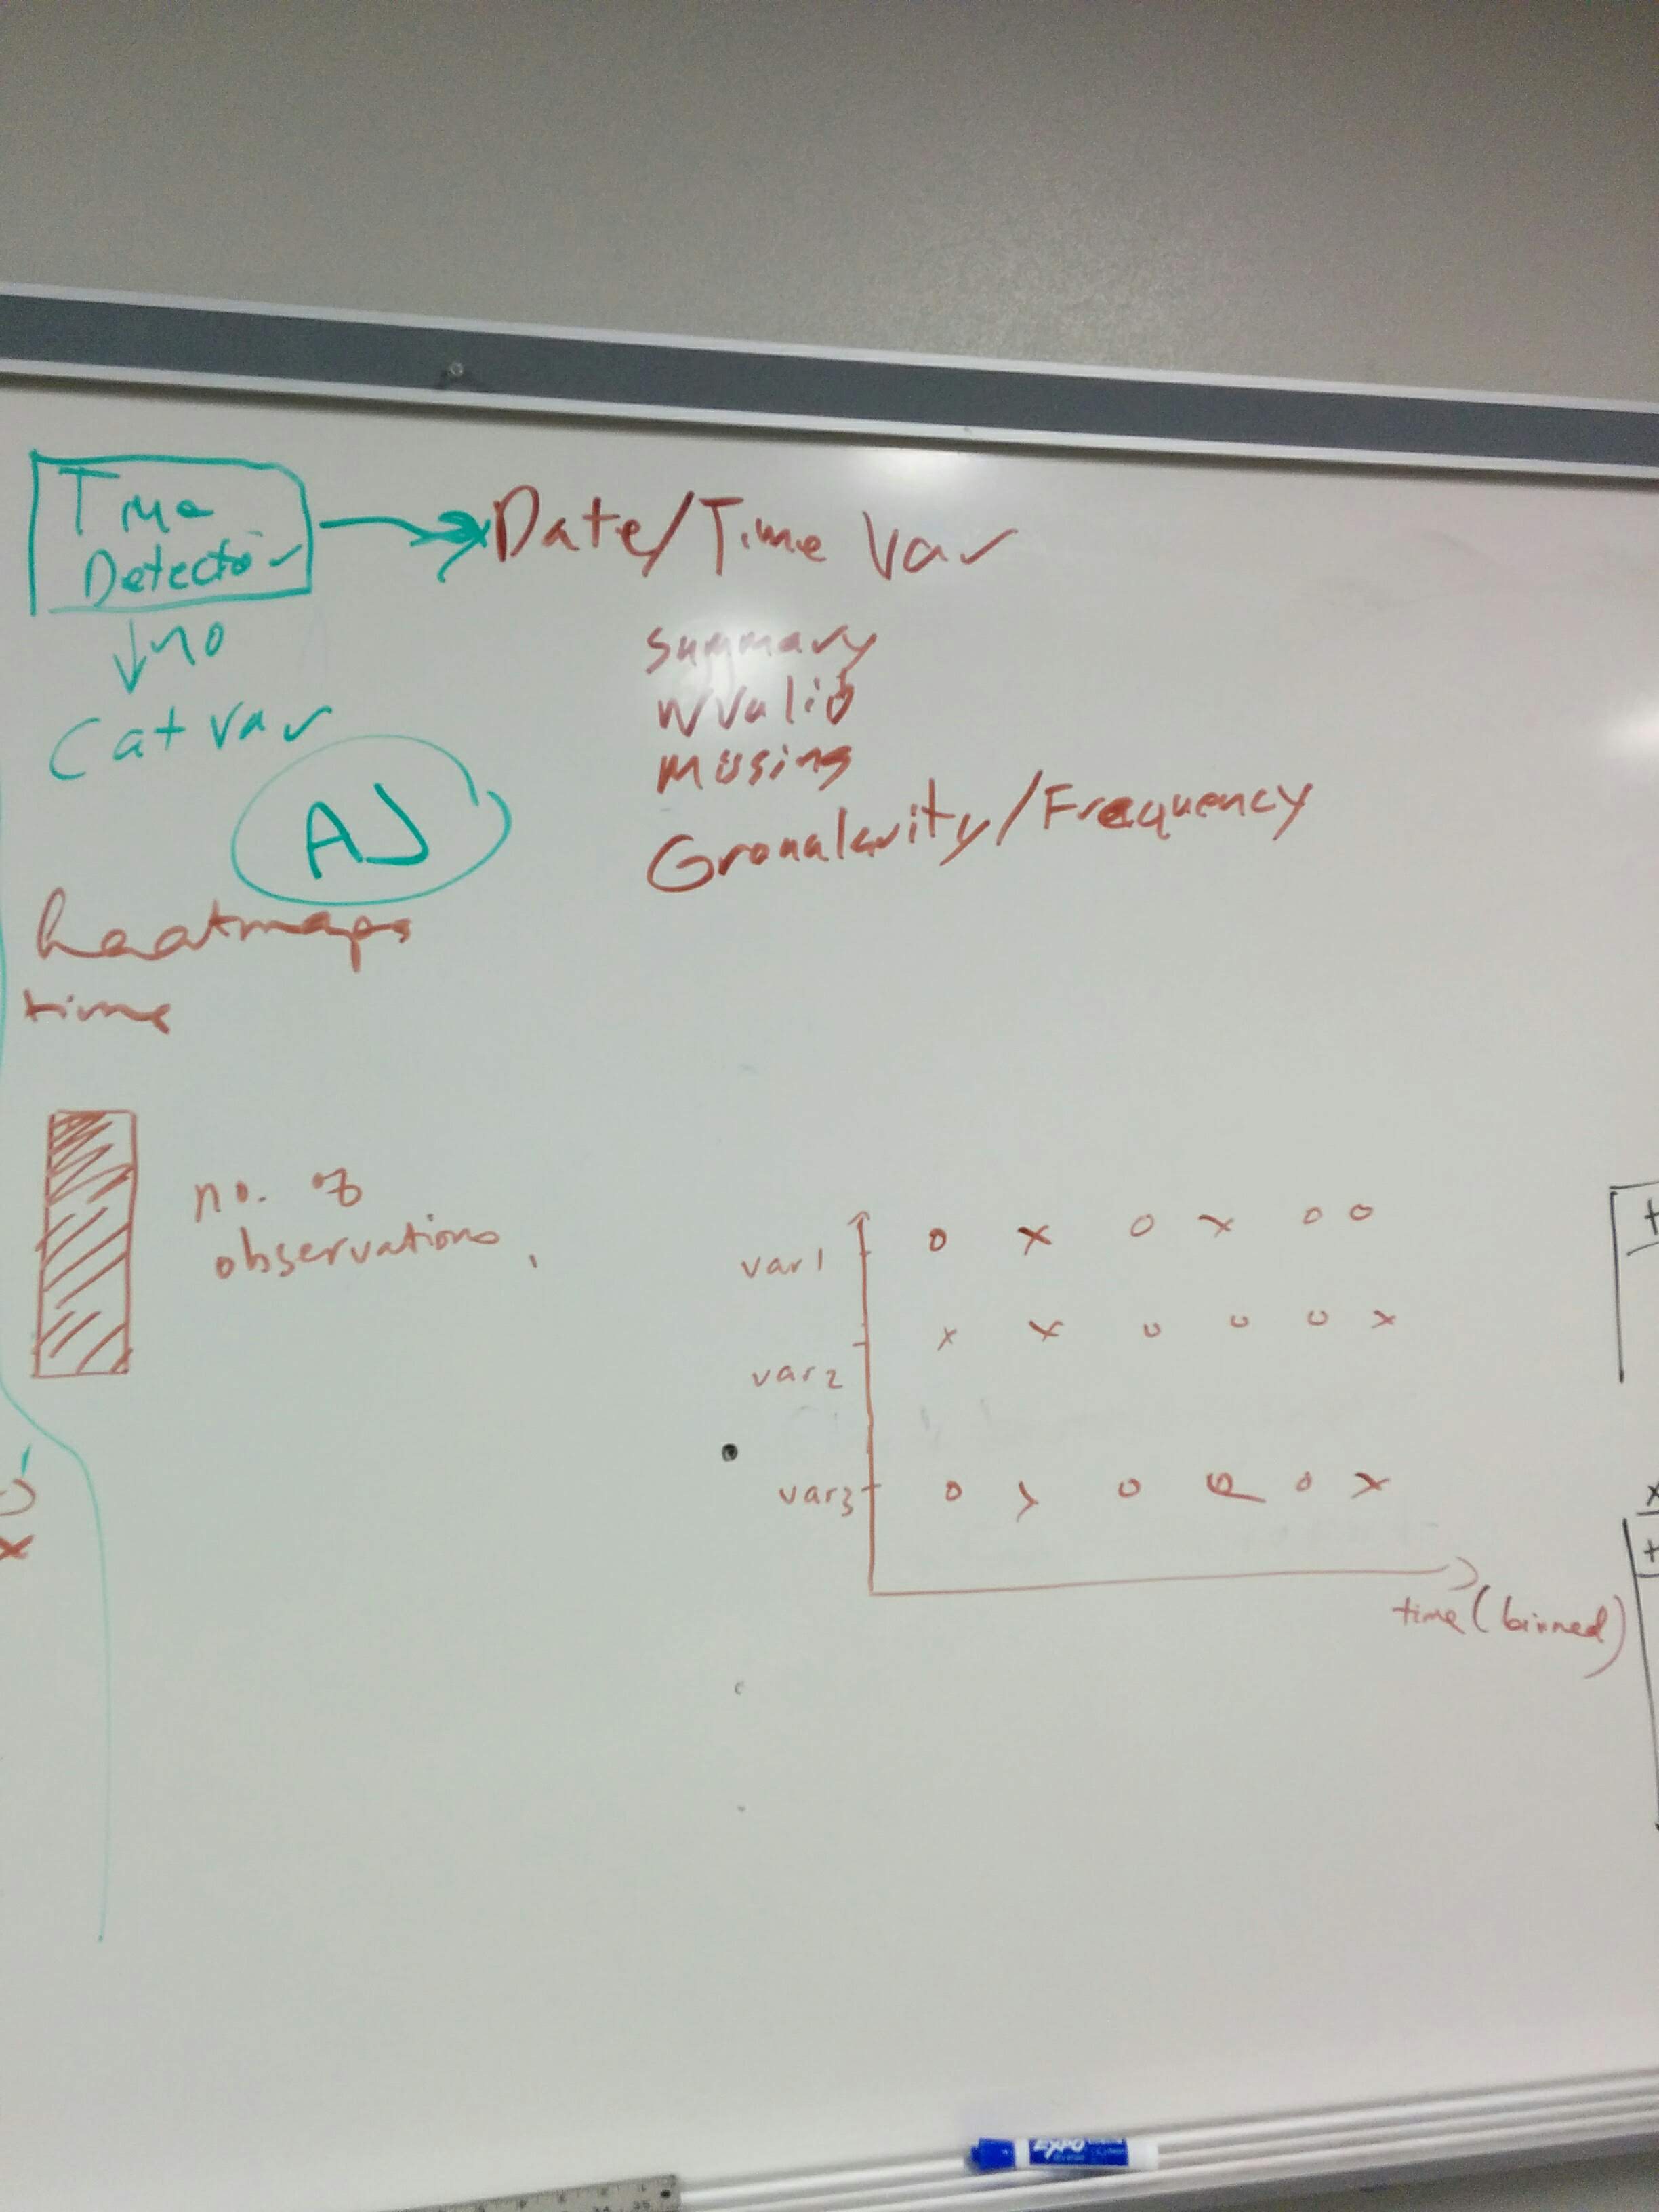 Time
Detector
Date/Time Var
no
Cat var
AJ
summary
NValid
missing
Gronalarity/Frequency
heatmaps
time
no. of
observations,
var1 o x o x o o
var2 x x o o o x
var3
time (binned)
EXPO